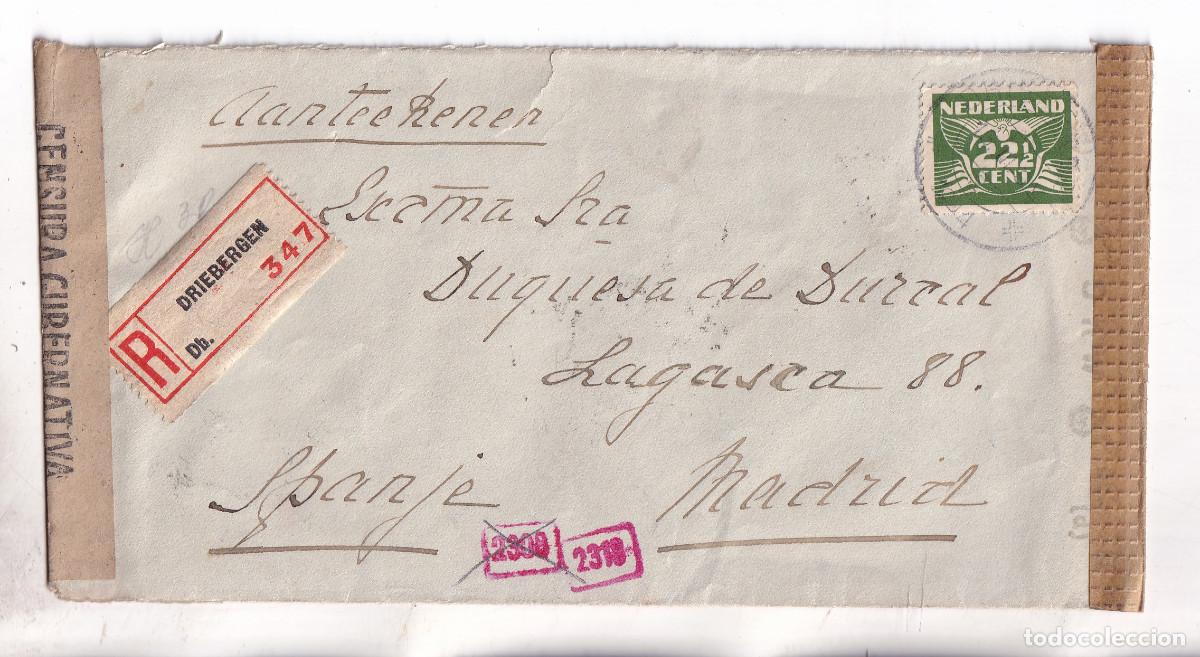 Aanteekenen
NEDERLAND
22 1/2
CENT
CENSURA GUBERNATIVA
R
DRIEBERGEN
Db.
347
Excma Sra
Duquesa de Durcal
Lagasca 88.
Spanje Madrid
2309
2318
todocoleccion